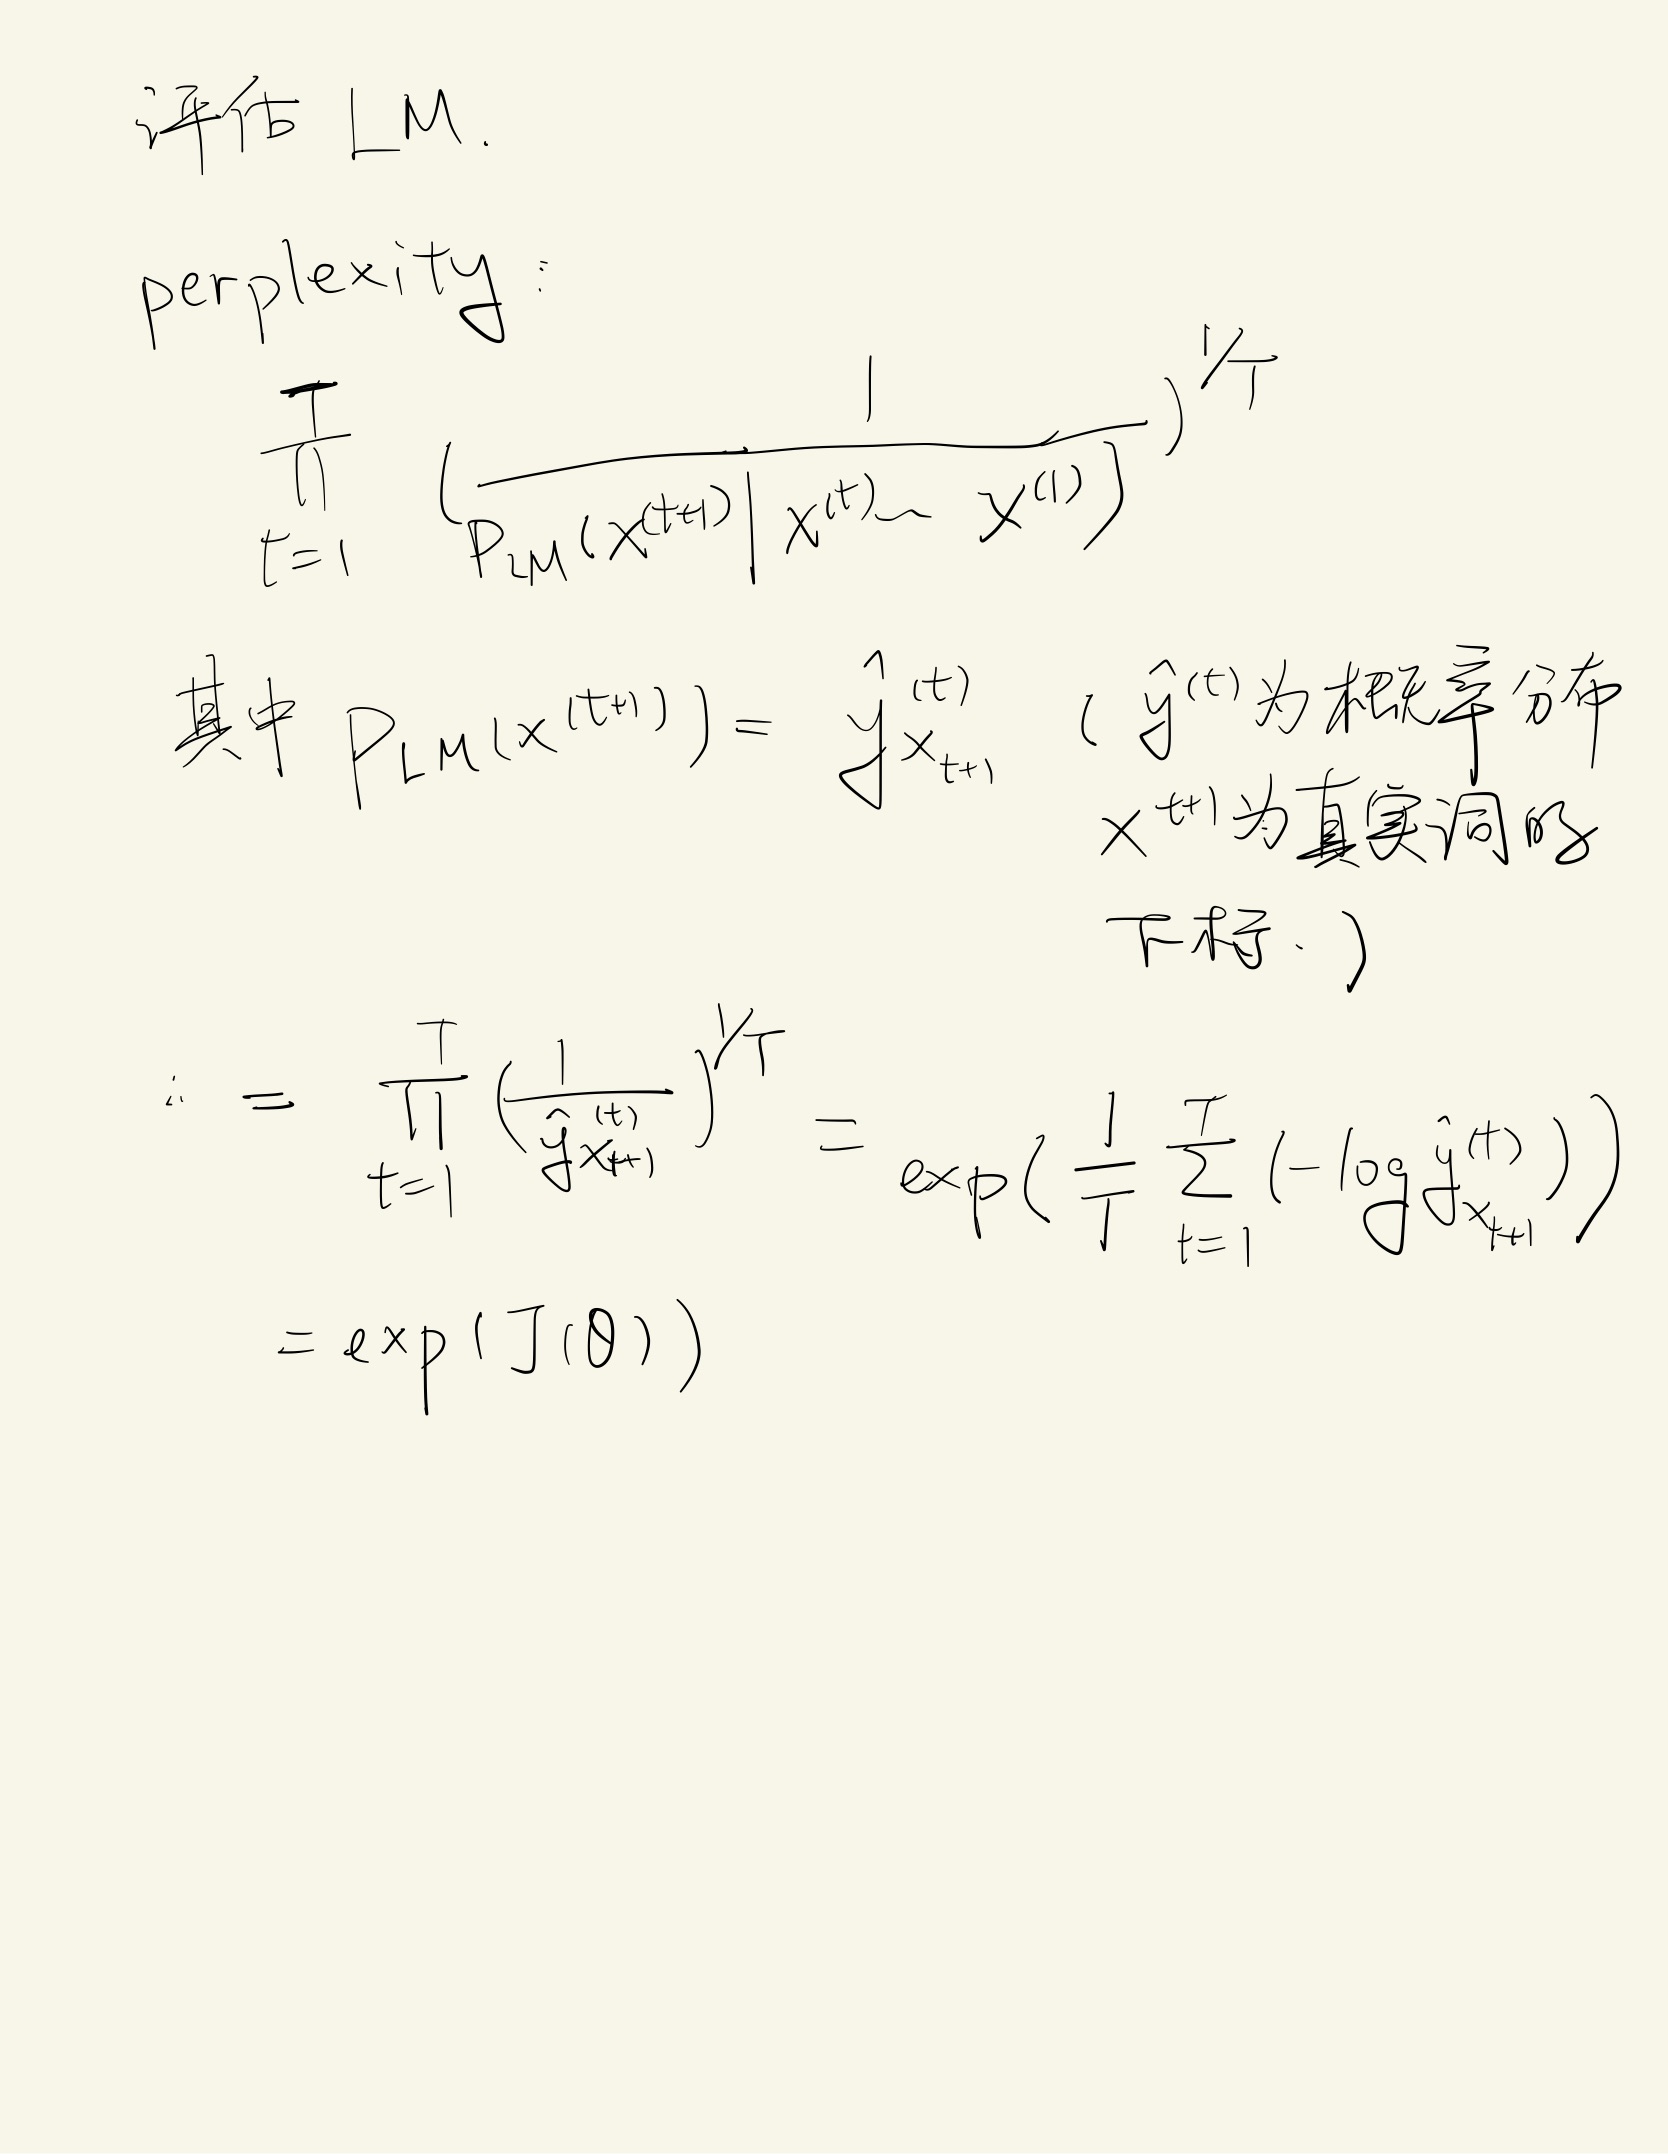 评估 LM.
perplexity:
∏_{t=1}^{T} ( 1 / P_{LM}(x^{(t+1)} | x^{(t)} ~ x^{(1)}) )^{1/T}
其中 P_{LM}(x^{(t+1)}) = ŷ^{(t)}_{x_{t+1}} ( ŷ^{(t)} 为概率分布
x^{t+1} 为真实词的
下标. )
∴ = ∏_{t=1}^{T} ( 1 / ŷ^{(t)}_{x_{t+1}} )^{1/T} = exp( 1/T ∑_{t=1}^{T} (-log ŷ^{(t)}_{x_{t+1}}) )
= exp(J(θ))